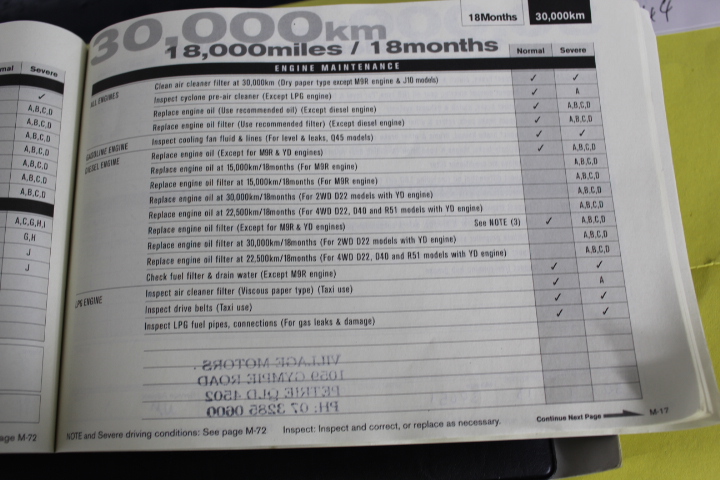 18Months 30,000km
4
30,000km
18,000miles / 18months
Normal Severe
ENGINE MAINTENANCE
ALL ENGINES
Clean air cleaner filter at 30,000km (Dry paper type except M9R engine & J10 models) ✓ ✓
Inspect cyclone pre-air cleaner (Except LPG engine) ✓ A
Replace engine oil (Use recommended oil) (Except diesel engine) ✓ A,B,C,D
Replace engine oil filter (Use recommended filter) (Except diesel engine) ✓ A,B,C,D
GASOLINE ENGINE
Inspect cooling fan fluid & lines (For level & leaks, Q45 models) ✓ ✓
DIESEL ENGINE
Replace engine oil (Except for M9R & YD engines) ✓ A,B,C,D
Replace engine oil at 15,000km/18months (For M9R engine) A,B,C,D
Replace engine oil filter at 15,000km/18months (For M9R engine) A,B,C,D
Replace engine oil at 30,000km/18months (For 2WD D22 models with YD engine) A,B,C,D
Replace engine oil at 22,500km/18months (For 4WD D22, D40 and R51 models with YD engine) A,B,C,D
Replace engine oil filter (Except for M9R & YD engines) See NOTE (3) ✓ A,B,C,D
Replace engine oil filter at 30,000km/18months (For 2WD D22 models with YD engine) A,B,C,D
Replace engine oil filter at 22,500km/18months (For 4WD D22, D40 and R51 models with YD engine) A,B,C,D
Check fuel filter & drain water (Except M9R engine) ✓ ✓
LPG ENGINE
Inspect air cleaner filter (Viscous paper type) (Taxi use) ✓ A
Inspect drive belts (Taxi use) ✓ ✓
Inspect LPG fuel pipes, connections (For gas leaks & damage) ✓ ✓
VILLAGE MOTORS
1059 GYMPIE ROAD
PETRIE QLD 4502
PH: 07 3285 0600
NOTE and Severe driving conditions: See page M-72 Inspect: Inspect and correct, or replace as necessary.
Continue Next Page
M-17
mal Severe
✓
A,B,C,D
A,B,C,D
A,B,C,D
A,B,C,D
A,B,C,D
A,B,C,D
A,B,C,D
A,C,G,H,I
G,H
J
J
age M-72